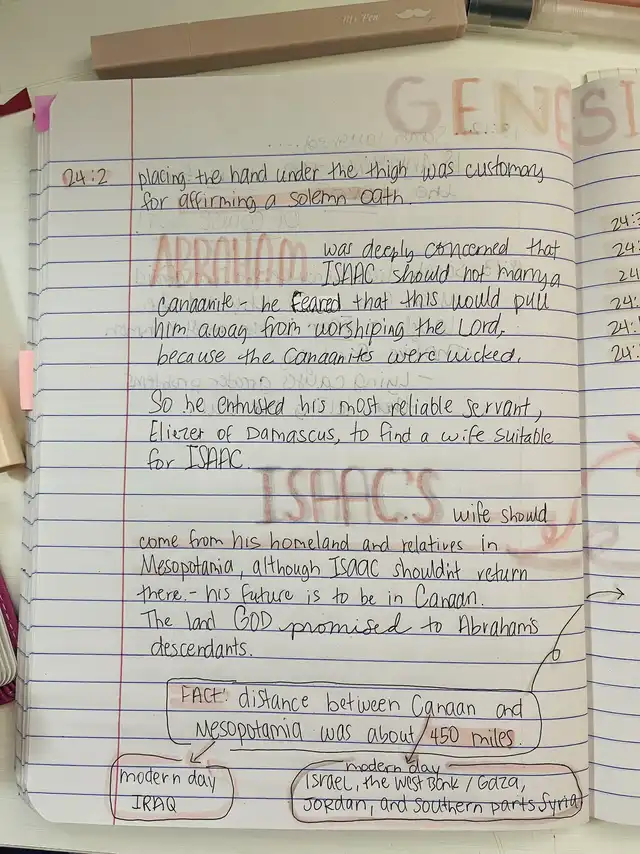 Mr. Pen
GENESIS
24:2 placing the hand under the thigh was customary
for affirming a solemn oath.
ABRAHAM was deeply concerned that
ISAAC should not marry a
Canaanite - he feared that this would pull
him away from worshiping the Lord,
because the Canaanites were wicked.
So he entrusted his most reliable servant,
Eliezer of Damascus, to find a wife suitable
for ISAAC.
ISAAC'S wife should
come from his homeland and relatives in
Mesopotania, although ISAAC shouldn't return
there. - his future is to be in Canaan.
The land GOD promised to Abraham's
descendants.
FACT: distance between Canaan and
Mesopotamia was about 450 miles.
modern day
IRAQ
modern day
Israel, the West Bank / Gaza,
Jordan, and Southern parts Syria
24:
24:
24
24:
24:
24: